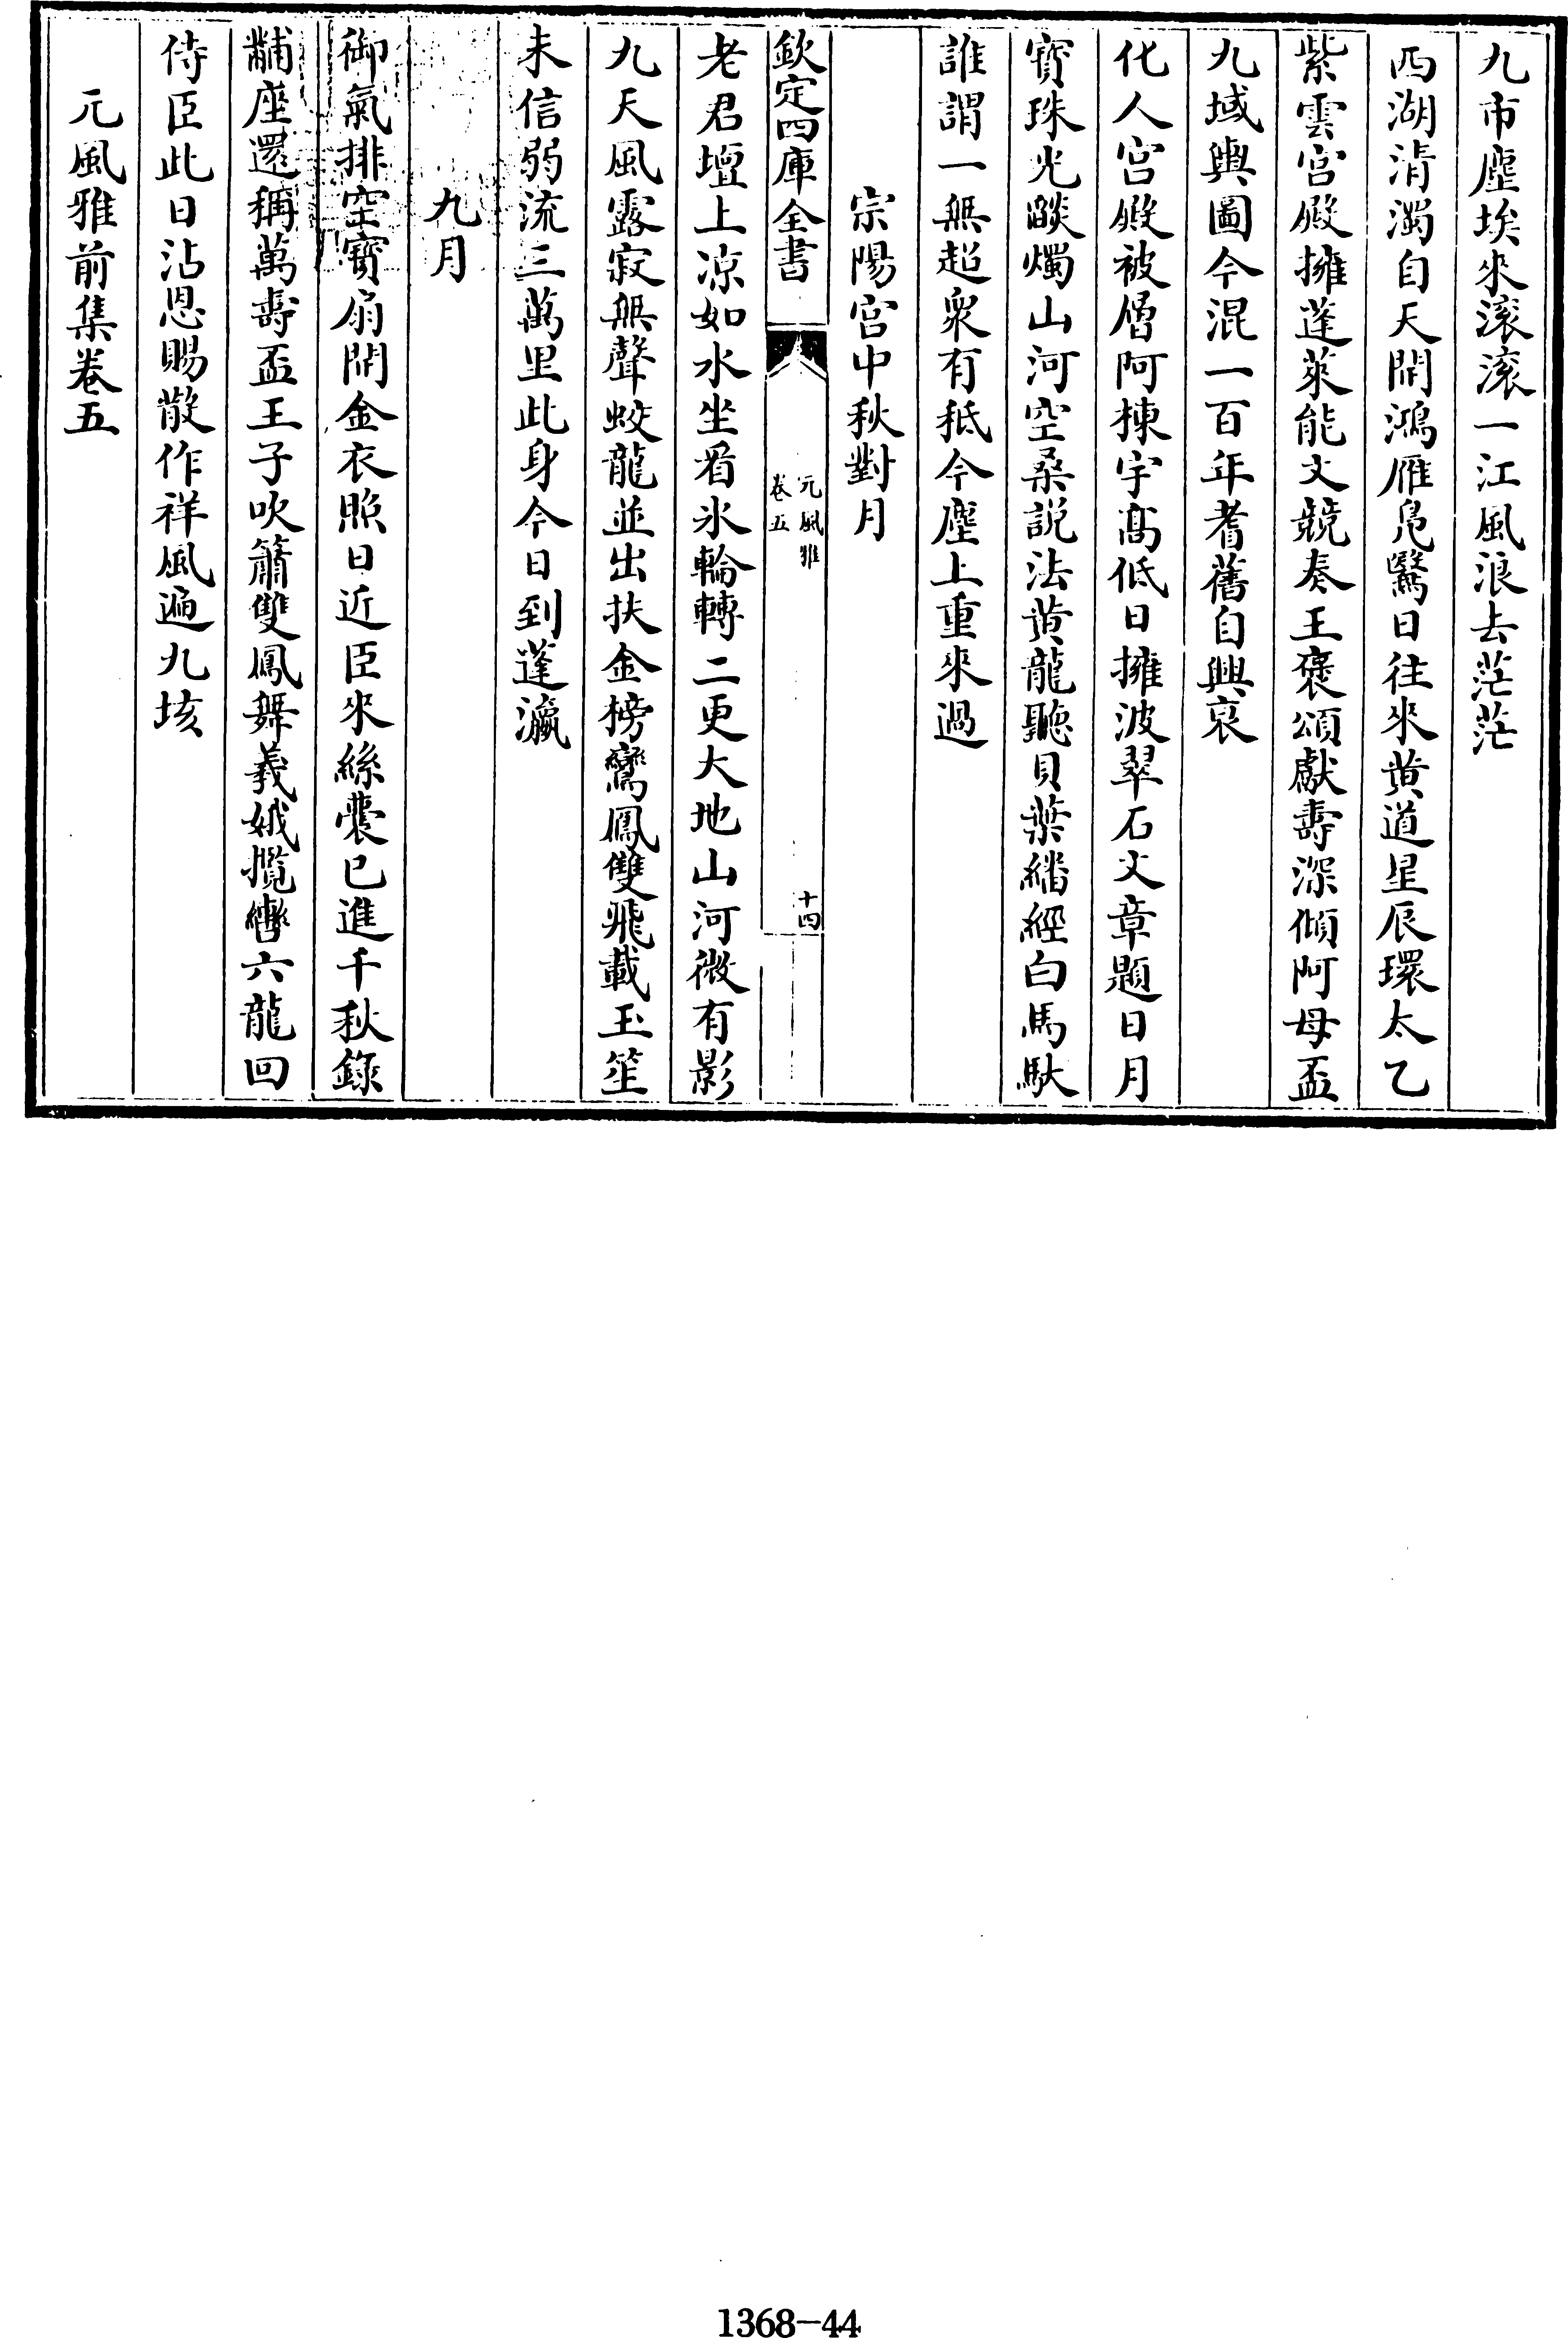 九市塵埃來滚滚一江風浪去茫茫
西湖清濁自天開鴻雁鳬鷖日往來黄道星辰環太乙
紫雲宫殿擁蓬萊能文競奏王褒頌獻壽深傾阿母盃
九域輿圖今混一百年耆舊自興哀
化人宫殿被層阿棟宇髙低日擁波翠石文章題日月
寳珠光燄燭山河空桑説法黄龍聽貝葉繙經白馬馱
誰謂一無超衆有秪今塵上重來過
宗陽宫中秋對月
欽定四庫全書
元風雅
卷五
十四
老君壇上凉如水坐看氷輪轉二更大地山河微有影
九天風露寂無聲蛟龍並出扶金榜鸞鳳雙飛載玉笙
未信弱流三萬里此身今日到蓬瀛
九月
御氣排空寳扇開金衣照日近臣來絲囊已進千秋錄
黼座還稱萬壽盃王子吹簫雙鳳舞羲娥攬轡六龍回
侍臣此日沾恩賜散作祥風遍九垓
元風雅前集卷五
1368-44